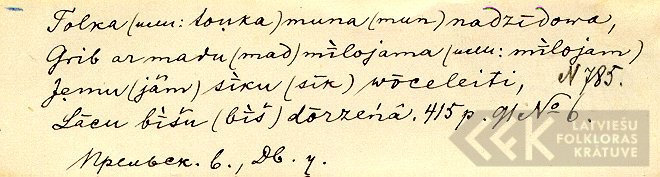 Tolka (или: toņka) muna (mun) nadzīdowa,
Grib ar madu (mad) mìlojama (или: mìlojam)
Jemu (jäm) sìku (sìk) wōceleiti, N 785.
Lācu bìšu (bìš) dōrzeńâ. 415 p. 91 № 6.
Прельск. в., Дв. у.
LATVIEŠU
FOLKLORAS
KRĀTUVE